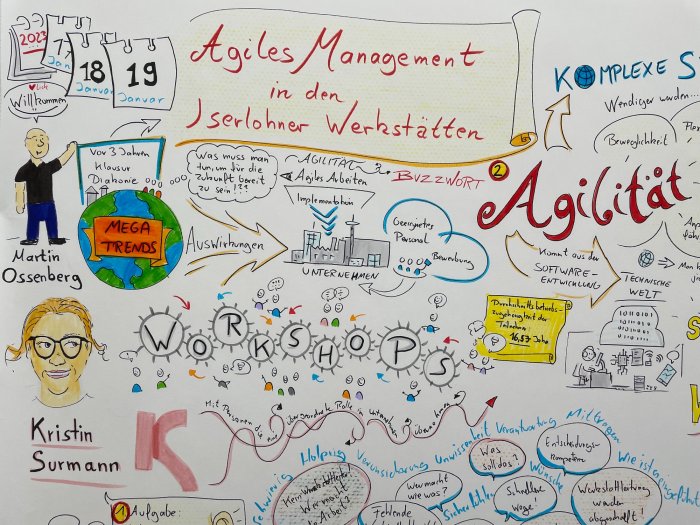 2023
17
Jan
18
Januar
19
Januar
Willkommen
Agiles Management
in den
Iserlohner Werkstätten
KOMPLEXE S
Wendiger werden...
Beweglichkeit
vor 3 Jahren
Klausur
Diakonie
Was muss man
tun, um für die
Zukunft bereit
zu sein???
AGILITÄT
Agiles Arbeiten
BUZZWORT
Implementation
2.
Agilität
MEGA
TRENDS
Auswirkungen
UNTERNEHMEN
Geeignetes
Personal
Bewerbung
Kommt aus der
SOFTWARE-
ENTWICKLUNG
TECHNISCHE
WELT
Martin
Ossenberg
Durchschnittsbetriebs-
zugehörigkeit der
16,53 Jahre
WORKSHOPS
Mit Personen die nur übergeordnete Rolle in Unternehmen übernehmen
Kristin
Surmann
K
schwierig
Holprig
Verunsicherung
Unwissenheit
Verantwortung
Mitgehen
Wie ist es eingeführt
Was
soll das?
Entscheidungs-
kompetenz
Wünsche
Wer macht
wie was?
Schnellere
Wege!
Werkstattleitung
werden
abgeschafft!
Kein Werkstattleiter
Wer macht
Fehlende
1 Aufgabe: